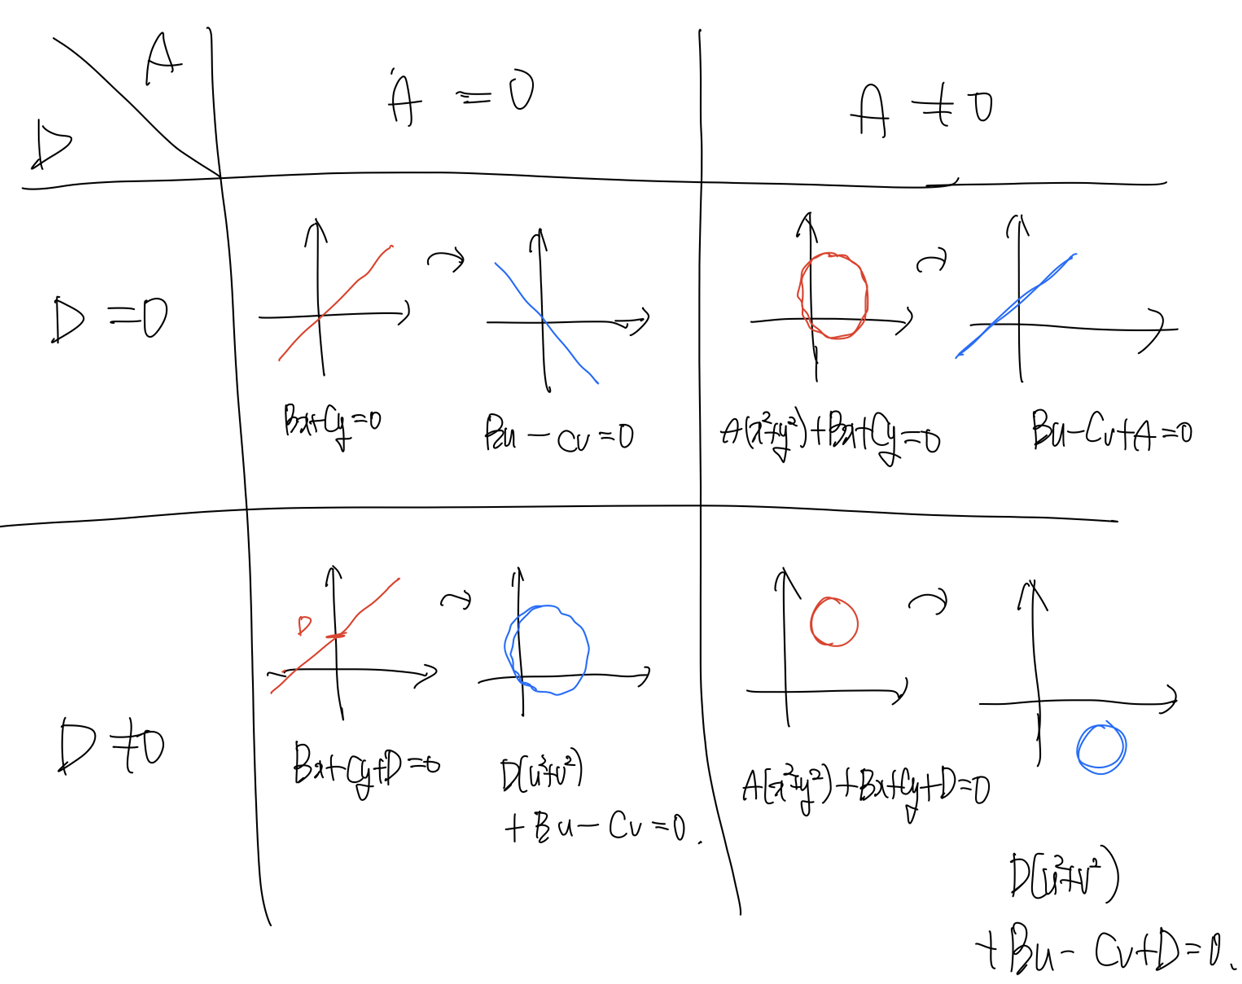 A
D
A = 0
A ≠ 0
D = 0
Bx+Cy=0
Bu - Cv = 0
A(x²+y²)+Bx+Cy=0
Bu-Cv+A=0
D ≠ 0
D
Bx+Cy+D=0
D(u²+v²)
+ Bu - Cv = 0.
A(x²+y²)+Bx+Cy+D=0
D(u²+v²)
+ Bu - Cv+D=0.